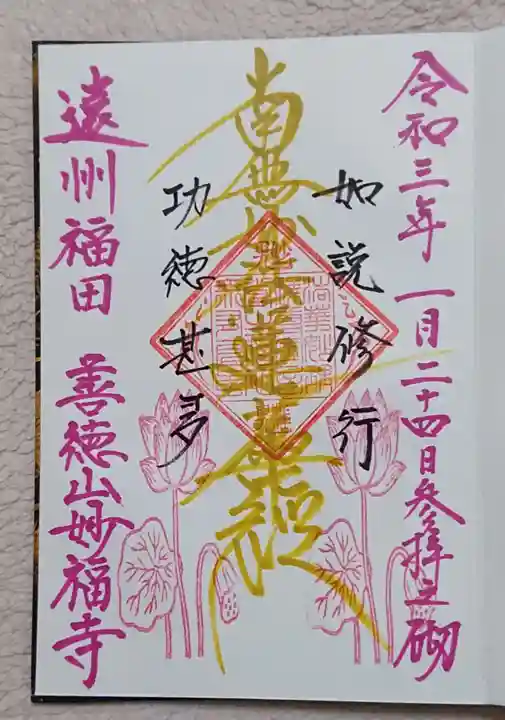 令和三年一月二十四日参拝之砌
如説修行
南無妙法蓮華経
功徳甚多
遠州福田 善徳山妙福寺